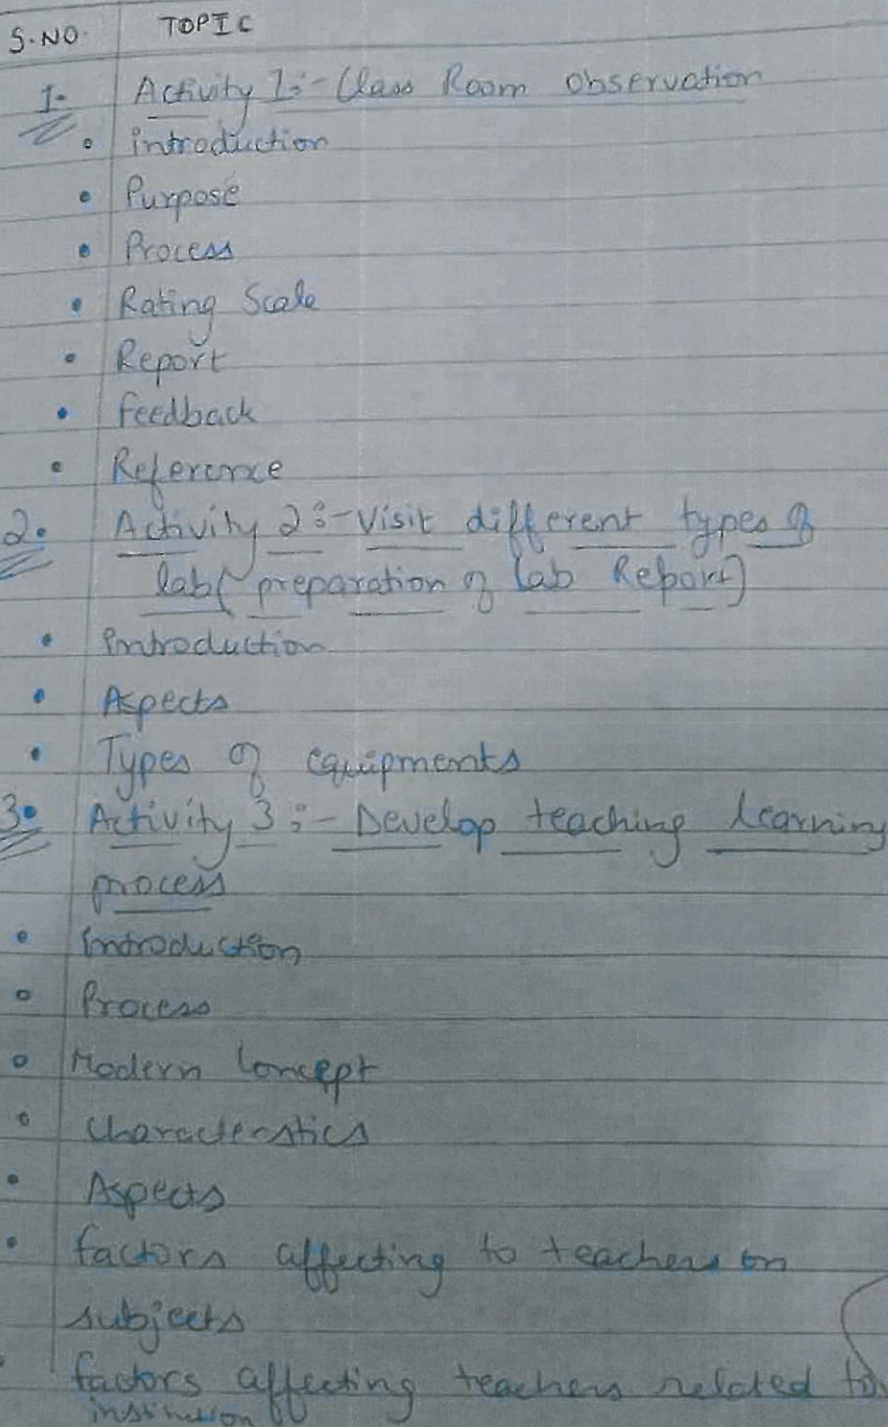 S.NO. TOPIC
1. Activity 1:- Class Room Observation
• introduction
• Purpose
• Process
• Rating Scale
• Report
• feedback
• Reference
2. Activity 2:- Visit different types of
lab( preparation of lab Report)
• Introduction
• Aspects
• Types of equipments
3. Activity 3:- Develop teaching learning
process
• Introduction
• Process
• Modern Concept
• Characterstics
• Aspects
• factors affecting to teachers on
subjects
• factors affecting teachers related to
institution